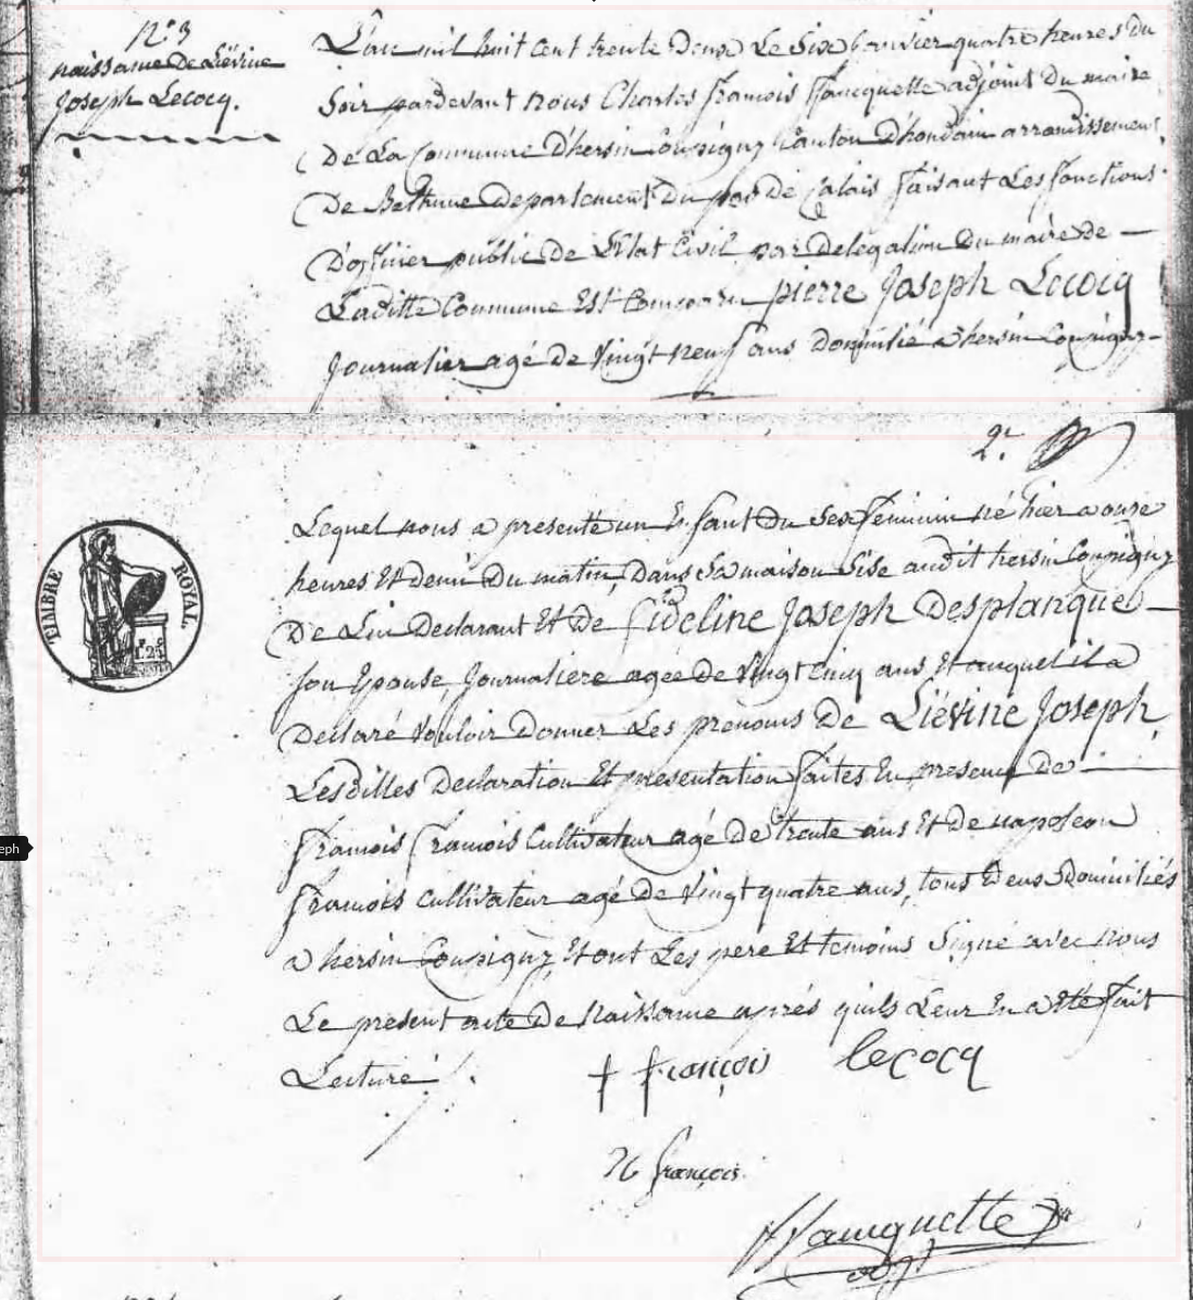 N° 3
naissance de Liévine
Joseph Lecocq.
L'an mil huit cent trente Deux Le Six janvier quatre heures Du
Soir pardevant nous Charles francois adjoint Du maire
De La Commune D'hersin Coupigny Canton D'houdain arrondissement
De Bethune Departement Du pas de Calais faisant Les fonctions
D'officier public De L'Etat Civil par Delegation Du maire de
Laditte Commune Est Comparu pierre Joseph Lecocq
Journalier agé de Vingt neuf ans Domicilié a hersin Coupigny
2e
Lequel nous a presenté un Enfant Du Sexe feminin né hier a onze
heures Et demi Du matin, Dans Sa maison Sise audit hersin Coupigny
De Lui Declarant Et de fideline Joseph Desplanque
Son Epouse, Journaliere agée de Vingt cinq ans Et auquel il a
Declaré Vouloir Donner Les prenoms De Liévine Joseph,
Lesdittes Declaration Et presentation faites En presence De
francois francois Cultivateur agé De trente ans Et De napoleon
francois Cultivateur agé de Vingt quatre ans, tous Deux Domiciliés
a hersin Coupigny Et ont Les pere Et temoins Signé avec nous
Le present acte De Naissance aprés quils Leur En a Eté fait
Lecture.
TIMBRE ROYAL.
françois lecocq
N françois
eph